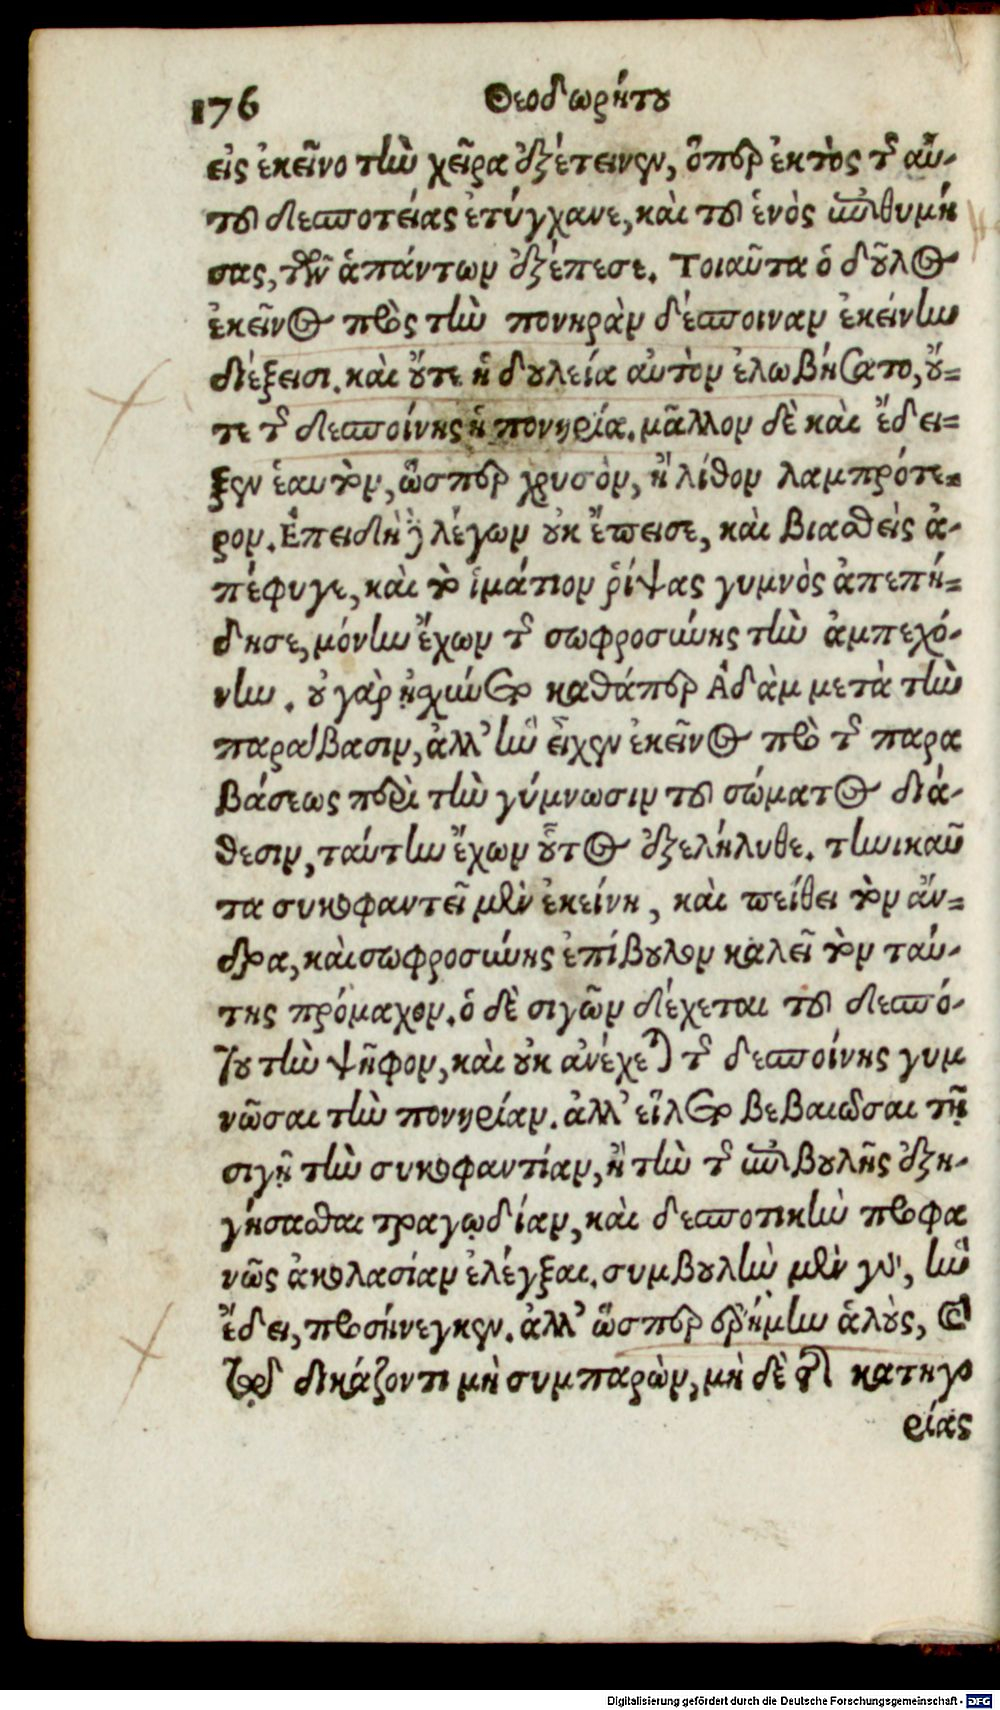 176 Θεοδωρήτου
εἰς ἐκεῖνο τὴν χεῖρα ἐξέτεινεν, ὅπερ ἐκτὸς τῆς αὐ-
τοῦ δεσποτείας ἐτύγχανε, καὶ τοῦ ἑνὸς ἐπιθυμή
σας, τῶν ἁπάντων ἐξέπεσε. Τοιαῦτα ὁ δοῦλος
ἐκεῖνος πρὸς τὴν πονηρὰν δέσποιναν ἐκείνην
διέξεισι. καὶ οὔτε ἡ δουλεία αὐτὸν ἐλωβήσατο, οὔ=
τε τῆς δεσποίνης ἡ πονηρία. μᾶλλον δὲ καὶ ἔδει=
ξεν ἑαυτὸν, ὥσπερ χρυσὸν, ἢ λίθον λαμπρότε=
ρον. Ἐπειδὴ δὲ λέγων οὐκ ἔπεισε, καὶ βιασθεὶς ἀ-
πέφυγε, καὶ τὸ ἱμάτιον ῥίψας γυμνὸς ἀπεπή=
δησε, μόνην ἔχων τῆς σωφροσύνης τὴν ἀμπεχό-
νην. οὐ γὰρ ᾐσχύνετο καθάπερ Ἀδὰμ μετὰ τὴν
παράβασιν, ἀλλ' ἣν εἶχεν ἐκεῖνος πρὸ τῆς παρα
βάσεως περὶ τὴν γύμνωσιν τοῦ σώματος διά-
θεσιν, ταύτην ἔχων οὗτος ἐξελήλυθε. τηνικαῦ
τα συκοφαντεῖ μὲν ἐκείνη, καὶ πείθει τὸν ἄν=
δρα, καὶ σωφροσύνης ἐπίβουλον καλεῖ τὸν ταύ-
της πρόμαχον. ὁ δὲ σιγῶν δέχεται τοῦ δεσπό-
του τὴν ψῆφον, καὶ οὐκ ἀνέχεται τῆς δεσποίνης γυμ
νῶσαι τὴν πονηρίαν. ἀλλ' εἵλετο βεβαιῶσαι τῇ
σιγῇ τὴν συκοφαντίαν, ἢ τὴν τῆς ἐπιβουλῆς ἐξη-
γήσασθαι τραγῳδίαν, καὶ δεσποτικὴν προφα
νῶς ἀκολασίαν ἐλέγξαι. συμβουλὴν μὲν γὰρ, ἣν
ἔδει, προσήνεγκεν. ἀλλ' ὥσπερ ἐρήμην ἁλοὺς, καὶ
τῷ δικάζοντι μὴ συμπαρὼν, μὴ δὲ τῆς κατηγο
ρίας
Digitalisierung gefördert durch die Deutsche Forschungsgemeinschaft - DFG